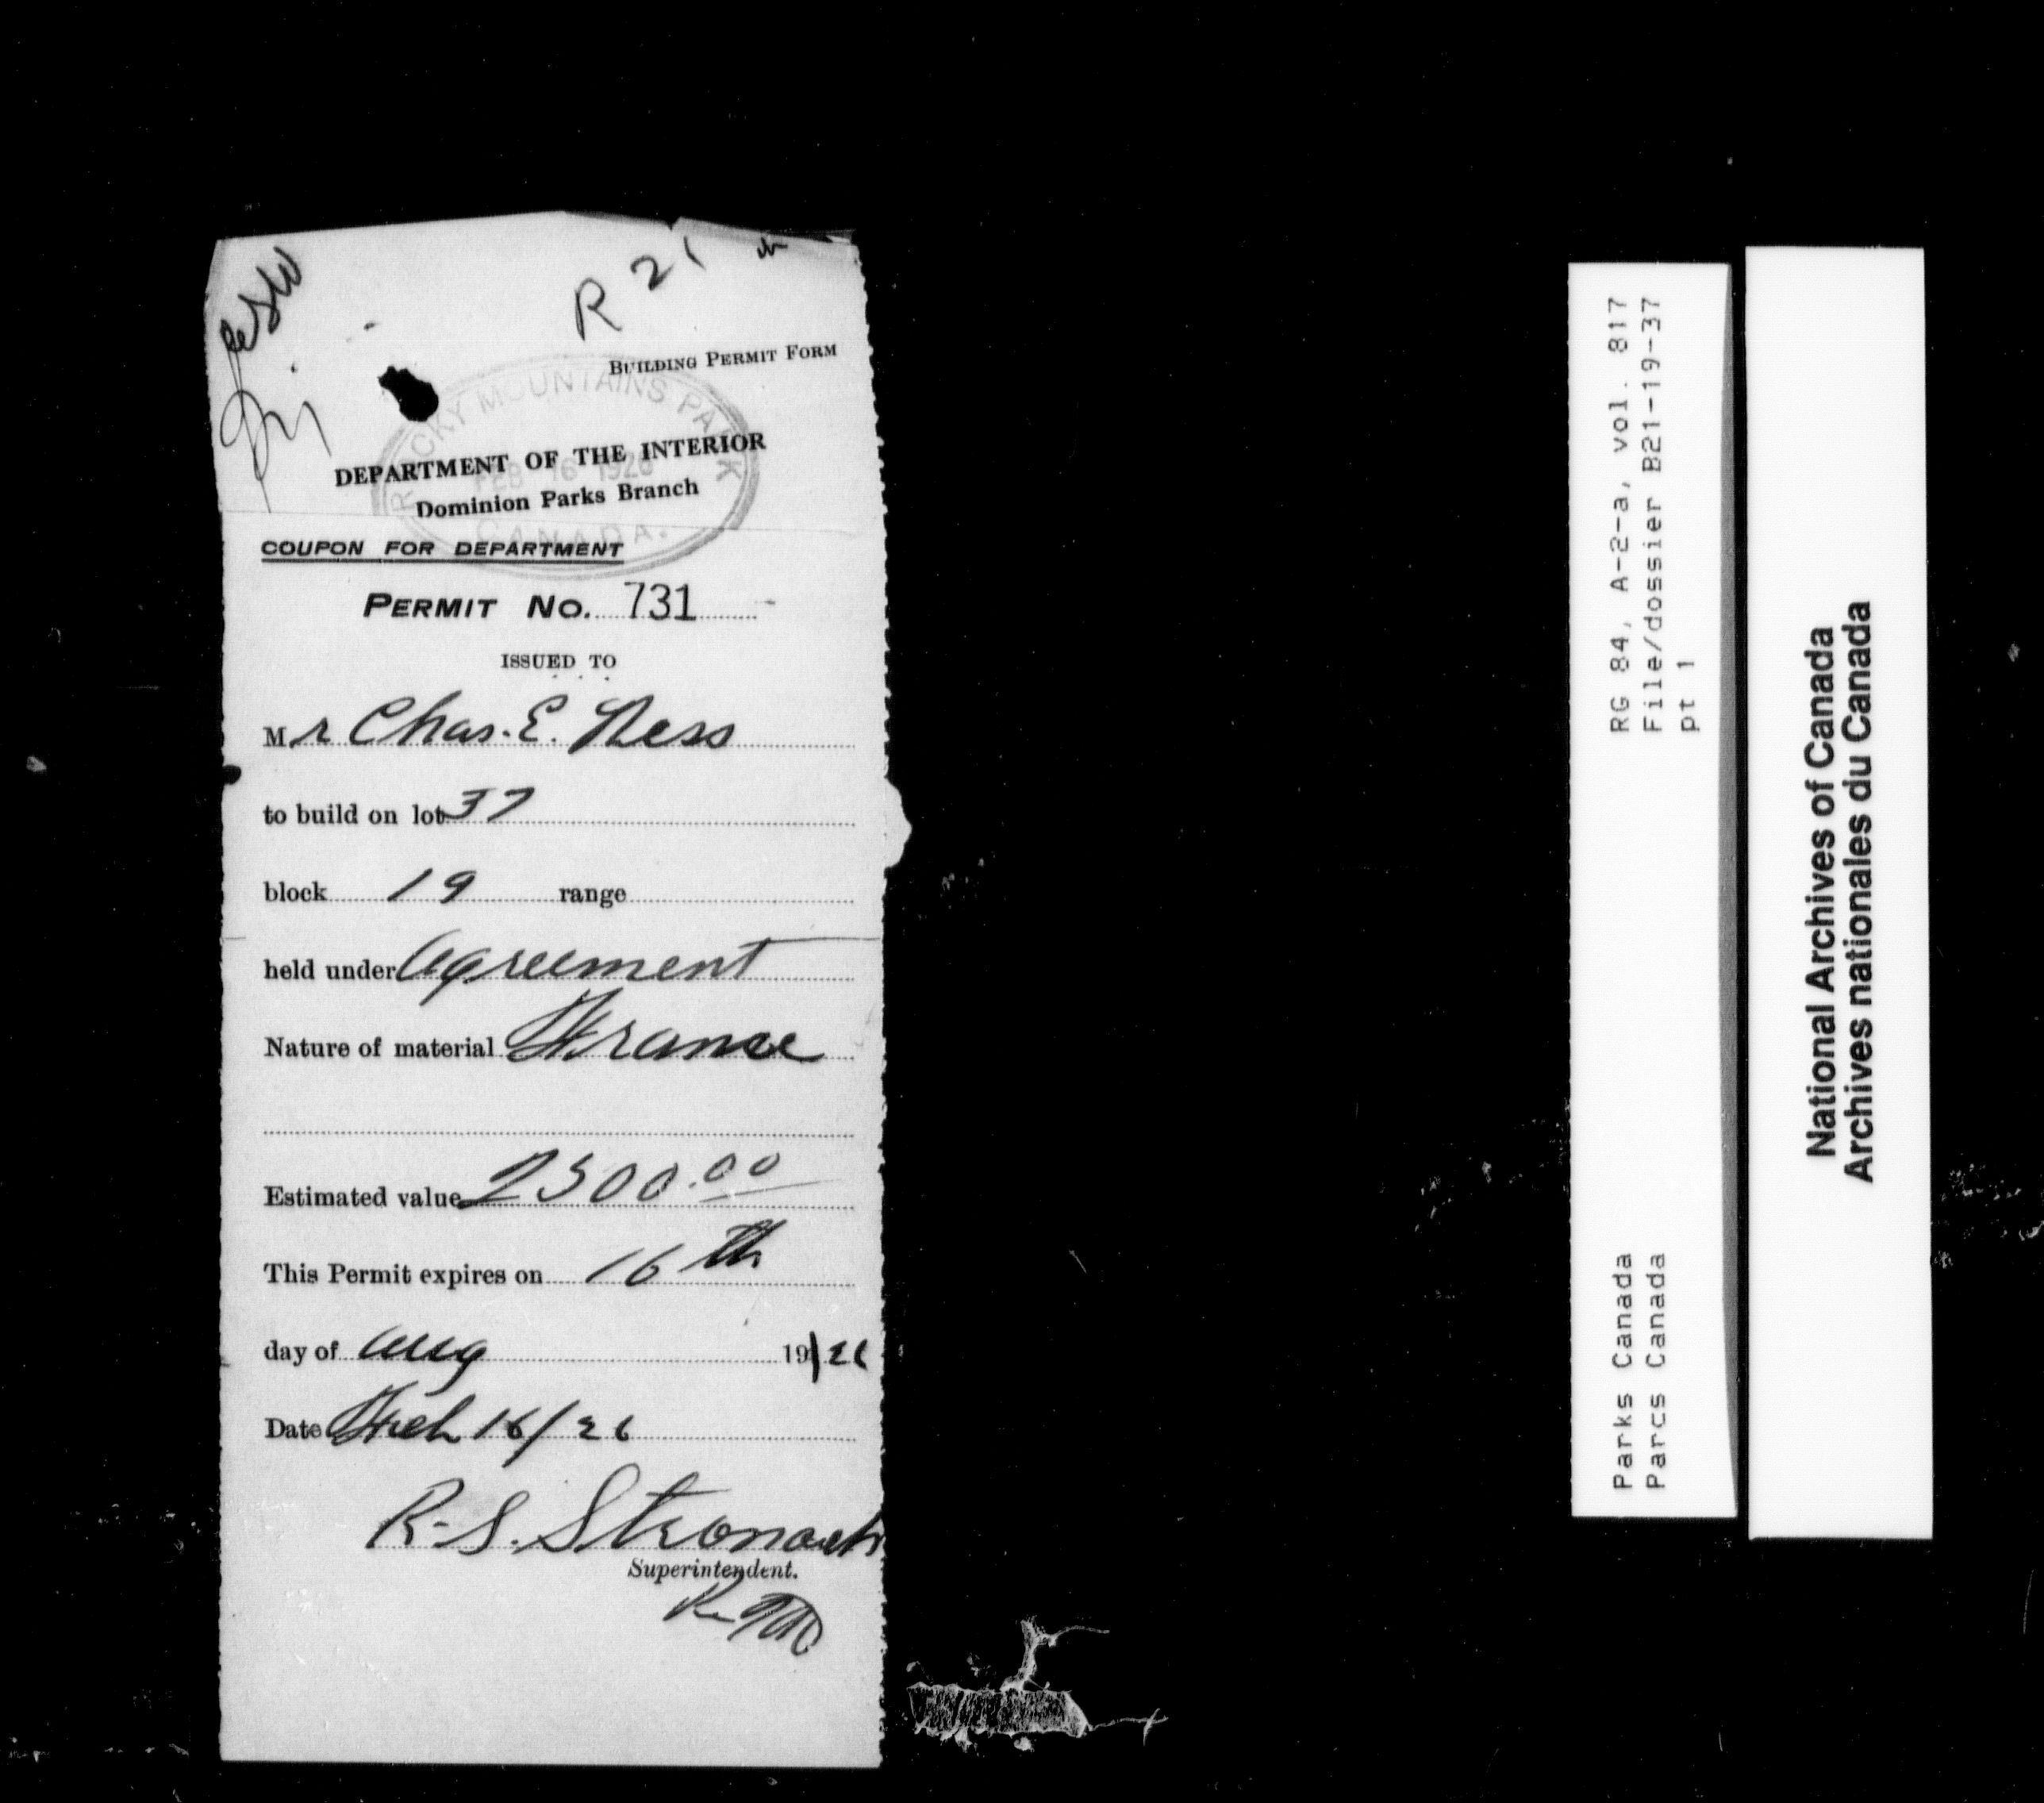 R 21
BUILDING PERMIT FORM
ROCKY MOUNTAINS PARK
FEB 16 1926
CANADA.
DEPARTMENT OF THE INTERIOR
Dominion Parks Branch
COUPON FOR DEPARTMENT
PERMIT NO. 731
ISSUED TO
Mr Chas. E. Ness
to build on lot 37
block 19 range
held under Agreement
Nature of material Frame
Estimated value 2500.00
This Permit expires on 16th
day of Aug 19 26
Date Feb 16/26
R. S. Stronach
Superintendent.
RG 84, A-2-a, vol. 817
File/dossier B21-19-37
pt 1
Parks Canada
Parcs Canada
National Archives of Canada
Archives nationales du Canada